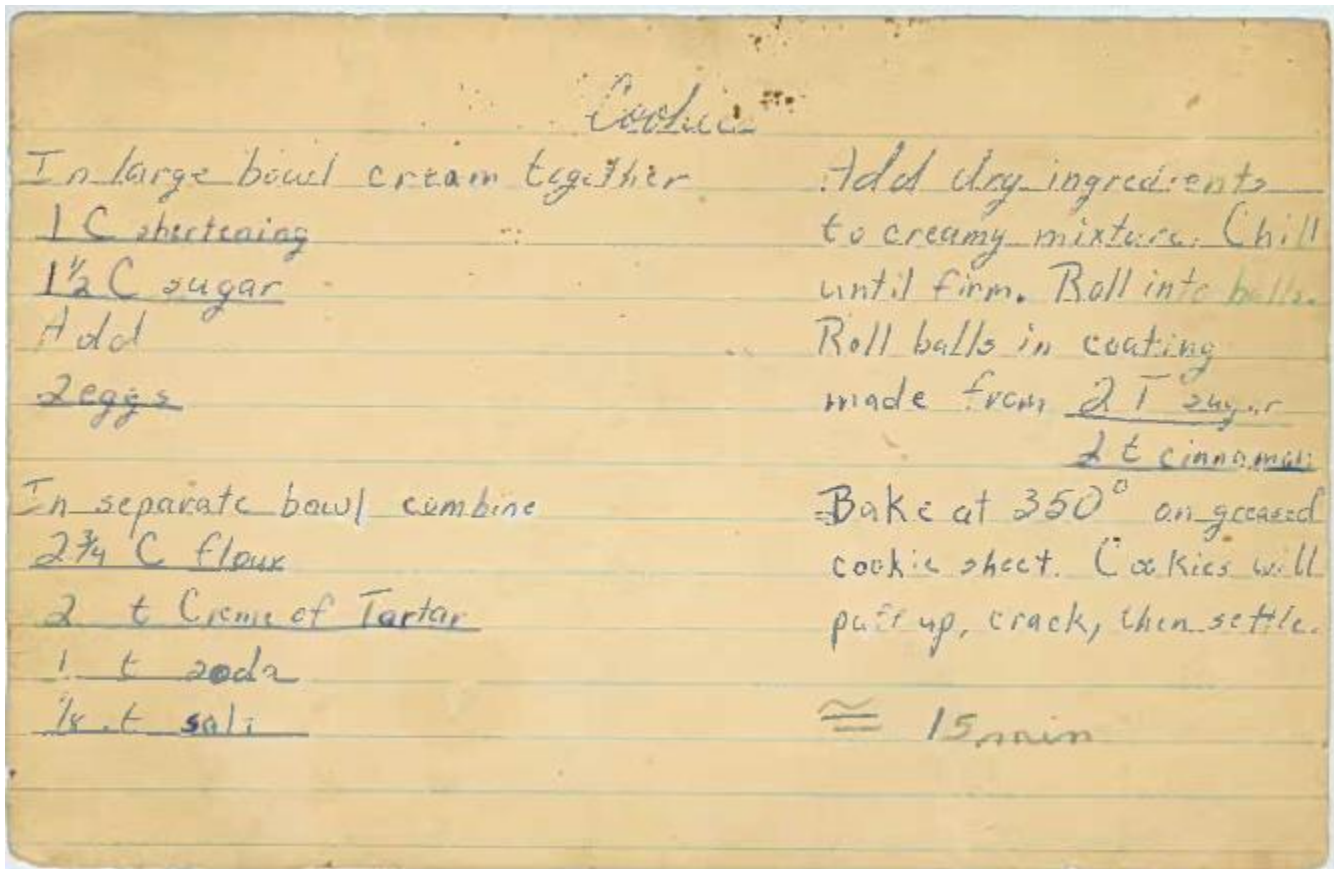 Cookies
In large bowl cream together
1 C shortening
1 1/2 C sugar
Add
2 eggs
In separate bowl combine
2 3/4 C flour
2 t Creme of Tartar
1 t soda
1/8 t salt
Add dry ingredients
to creamy mixture. Chill
until firm. Roll into balls.
Roll balls in coating
made from 2 T sugar
2 t cinnamon
Bake at 350° on greased
cookie sheet. Cookies will
puff up, crack, then settle.
≅ 15 min